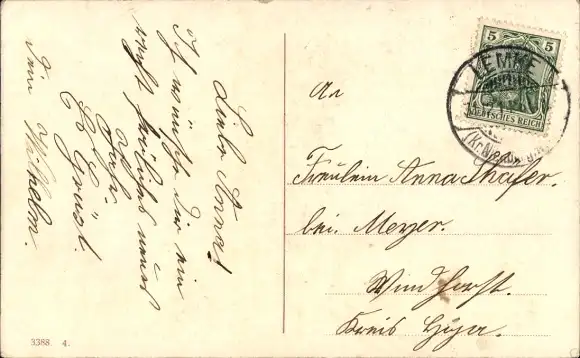 Liebe Anna!
Ich wünsche Dir ein
recht frohes neues
Jahr.
Es Grüßt
Dein Wilhelm.
An
Fräulein Anna Thäfer.
bei Meyer.
Windhorst.
Kreis Hoya.
5 5
DEUTSCHES REICH
LEMKE
(Kr. Nienburg)
3388 4.